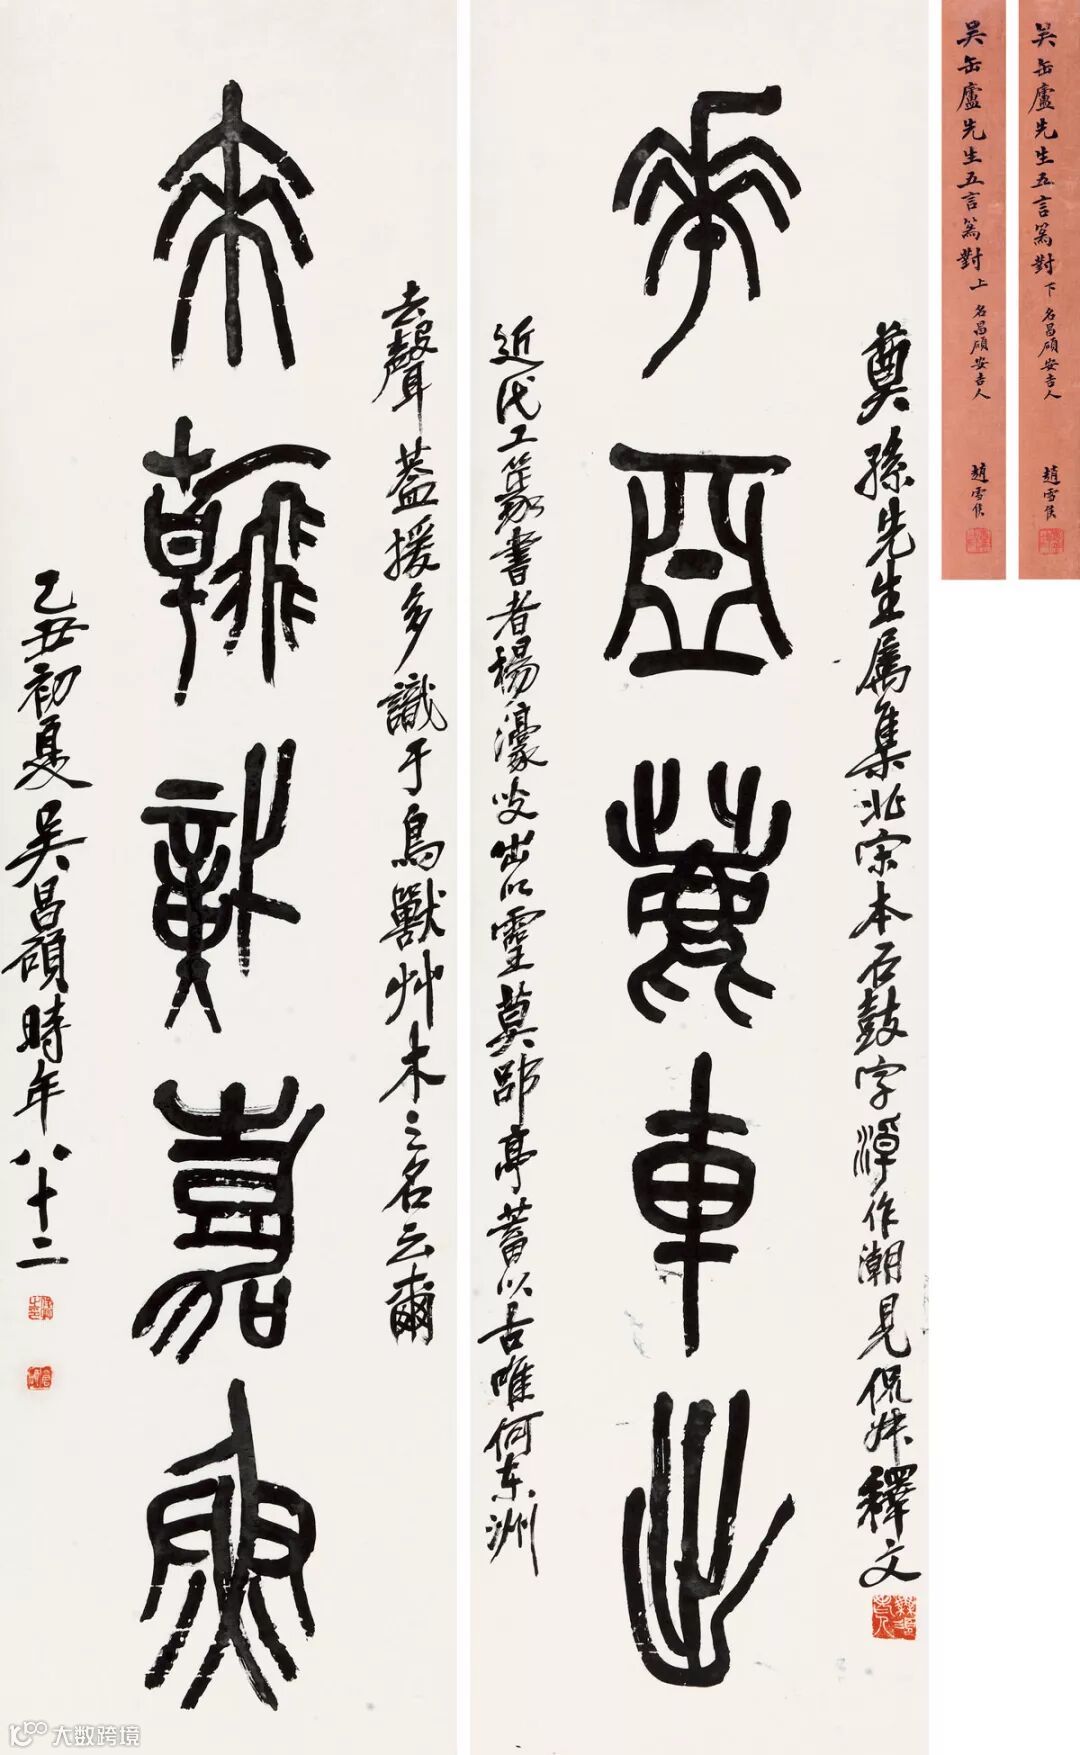 吴缶廬先生五言篆對 下 名昌碩安吉人 趙雪侯
吴缶廬先生五言篆對 上 名昌碩安吉人 趙雪侯
奠孫先生屬集北宋本石鼓字淖作潮見侃叔釋文
亞 車出
近代工篆書者楊濠叟出以靈莫郘亭蓄以古唯何東洲
去聲蓋援多識于鳥獸艸木之名云爾
翰 嘉魚
乙丑初夏吴昌碩時年八十二
大数跨境